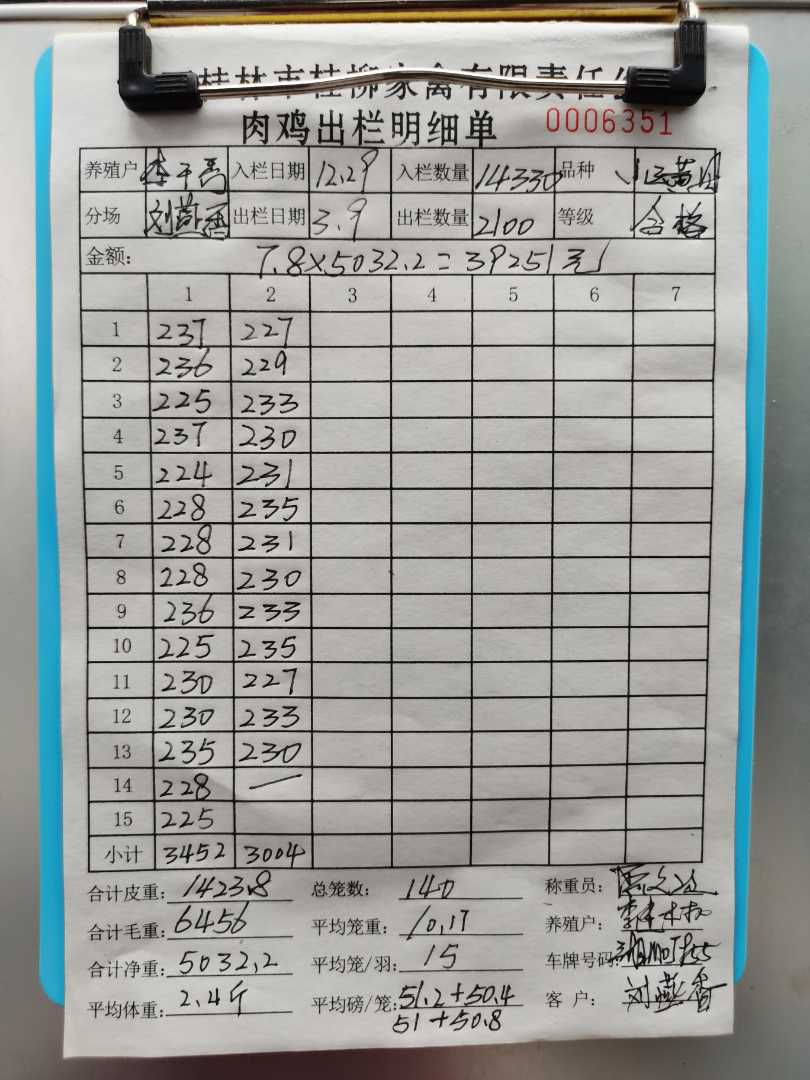 桂林市桂柳家禽有限责任
肉鸡出栏明细单 0006351
养殖户 李千秀 入栏日期 12.29 入栏数量 14330 品种
分场 出栏日期 3.9 出栏数量 2100 等级 合格
金额: 7.8×5032.2=39251元
1 2 3 4 5 6 7
1 237 227
2 236 229
3 225 233
4 237 230
5 224 231
6 228 235
7 228 231
8 228 230
9 236 233
10 225 235
11 230 227
12 230 233
13 235 230
14 228 —
15 225
小计 3452 3004
合计皮重: 1423.8 总笼数: 140 称重员:
合计毛重: 6456 平均笼重: 10.17 养殖户:
合计净重: 5032.2 平均笼/羽: 15 车牌号码:
平均体重: 2.4斤 平均磅/笼: 51.2+50.4 客户: 刘燕香
51+50.8